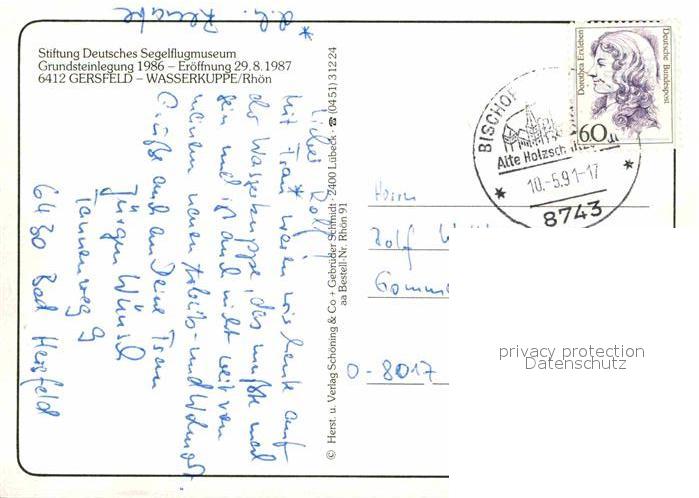 Stiftung Deutsches Segelflugmuseum
Grundsteinlegung 1986 – Eröffnung 29.8.1987
6412 GERSFELD – WASSERKUPPE/Rhön
Lieber Rolf,
Mit waren wir heute auf
der Wasserkuppe, das mußte mal
sein und ist auch nicht weit von
meinem neuen Arbeits- und Wohnort.
Grüße auch an Deine Frau
Jürgen
Tannenweg 9
6430 Bad Hersfeld
© Herst. u. Verlag Schöning & Co + Gebrüder Schmidt · 2400 Lübeck · ☎ (0451) 31224
aa Bestell-Nr. Rhön 91
Dorothea Erxleben
Deutsche Bundespost
60
BISCHOF
Alte Holzsch
10.-5.91-17
8743
Herrn
Rolf
O-8017
privacy protection
Datenschutz